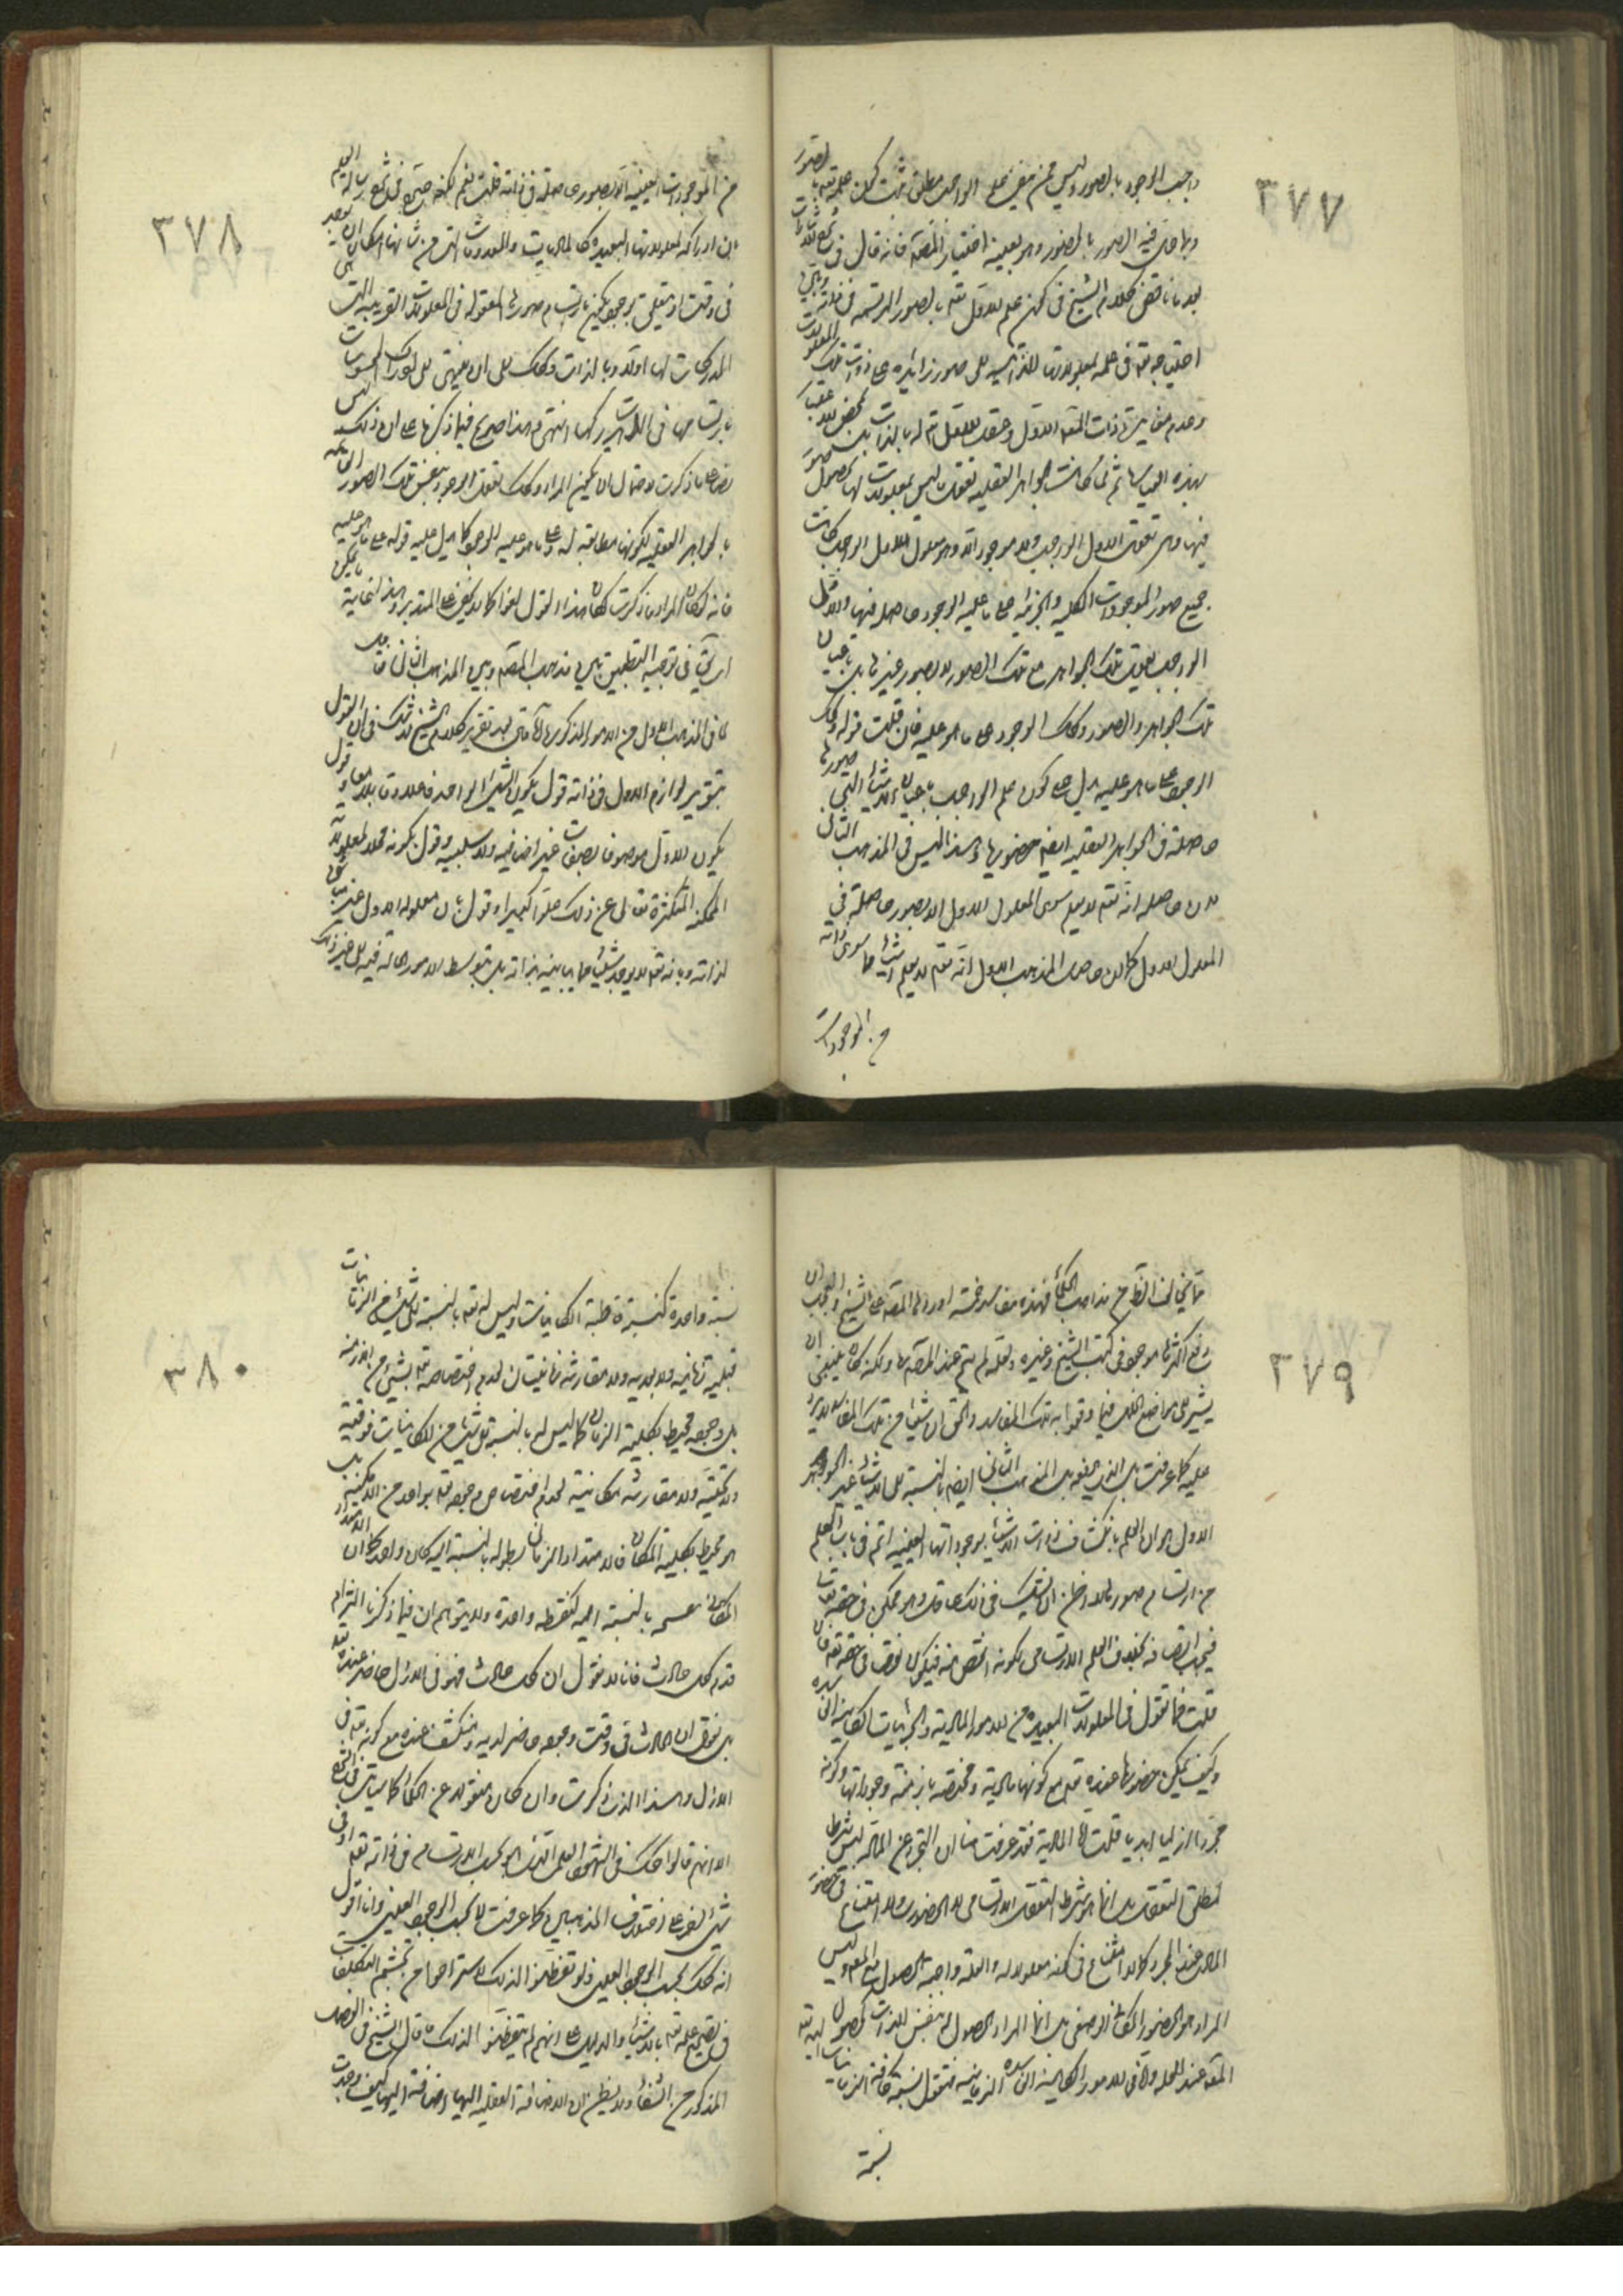 ٣٧٧
واجب الوجود بالصور وليس ممن يقول علم الواجب مطلق
وبما حل فيه الصور بالحضور وهو بعينه اختيار المصنف فانه قال في
بعد ما ناقض كلام الشيخ في كون علم الاول تعالى بالصور المرتسمة في ذاته
احتياجه تعالى في علمه بمعلولاتها الى صور زائدة على ذوات تلك المعلولات
بهذه العبارة ثم لما كانت الجواهر العقلية تعقل ما ليس بمعلولات لها بحصول صور
فيها وهي تعقل الاول الواجب ولا موجود الا وهو معلول للاول الواجب كانت
جميع صور الموجودات الكلية والجزئية على ما عليه الوجود حاصلة فيها والاول
الواجب يعقل تلك الجواهر مع تلك الصور لا بصور غيرها بل باعيان
تلك الجواهر والصور وكذلك الوجود على ما هو عليه فان قلت قوله وكذلك
الوجود على ما هو عليه يدل على كون علم الواجب باعيان الاشياء التي صورها
حاصلة في الجواهر العقلية ايضا حضوريا وهذا ليس في المذهب الثاني
لان حاصله انه تعالى لا يعلم سوى المعلول الاول الا بصور حاصلة في
المعلول الاول كما ان حاصل المذهب الاول انه تعالى لا يعلم شيئا مما سوى ذاته
من الموجودات
٣٧٨
من الموجودات العينية الا بصور حاصلة في ذاته قلت نعم لكنه صرح في شرح رسالة العلم
بان ادراكه لمعلولاتها البعيدة كالماديات والمعدومات التي من شانها امكان ان توجد
في وقت او تتعلق بموجود يكون بارتسام صورها المعقولة في المعلولات القريبة التي هي
المدركات لها اولا وبالذات وكذلك الى ان ينتهي الى ادراك المحسوسات
بارتسامها في آلات مدركها انتهى وهذا صريح فيما ذكرنا على ان ذلك ليس
نصا على ما ذكرت لاحتمال ان يكون المراد وكذلك تعقل الوجود بنفس تلك الصور القائمة
بالجواهر العقلية لكونها مطابقة له على ما هو عليه الوجود كما يدل عليه قوله على ما هو عليه
فانه لو كان المراد ما ذكرت لكان هذا القول لغوا كما لا يخفى على المتدبر وهذا غاية ما يمكن
ان يقال في توجيه التطبيق بين مذهب المصنف وبين المذهب الثاني
كما في المذهب الاول من الامور المذكورة
بتقرير لوازم الاول في ذاته قول بكون الشيء الواحد فاعلا وقابلا معا وقول
بكون الاول موصوفا بصفات غير اضافية ولا سلبية وقول بكونه محلا لمعلولاته
الممكنة المتكثرة تعالى عن ذلك علوا كبيرا وقول بان معلوله الاول غير مباين
لذاته وبانه تعالى لا يوجد شيئا مما يباينه بذاته بل بتوسط الامور الحالة فيه الى غير ذلك
٣٧٩
مما يخالف الظاهر من مذاهب الحكماء فهذه مفاسد خمسة اوردها المصنف على الشيخ والجواب ان
دفع اكثرها موجود في كتب الشيخ وغيره ولعله لم يتم عند المصنف ولكنه كان ينبغي ان
يشير الى مواضع الخلل فيما وقوا به تلك المفاسد والحق ان شيئا من تلك المفاسد لا يرد
عليه كما عرفت بل الذي يضعف المذهب الثاني ايضا بالنسبة الى الاشياء غير الجوهر
الاول هو ان العلم بانكشاف ذوات الاشياء بوجوداتها العينية اتم في باب العلم
من ارتسام صورها ولا اظن ان يشك في ذلك عاقل وهو ممكن في حقه تعالى
فيجب اتصافه به بخلاف العلم الارتسامي لكونه انقص منه فيكون نقصا في حقه تعالى فان
قلت فما تقول في المعلولات البعيدة من الامور المادية والجزئيات الكائنة الفاسدة
وكيف يمكن حضورها عنده تعالى مع كونها مادية ومختصة بازمنة وجوداتها وكونه
مجردا ازليا ابديا قلت اما المادية فقد عرفت منا ان التجرد عن المادة ليس شرط
لمطلق التعقل بل انما هو شرط التعقل الارتسامي لا الحضوري ولا امتناع في حضور
المادي عند المجرد كما لا امتناع في كونه معلولا له والعلة واجبة الحصول مع المعلول وليس
المراد هو الحضور المكاني الوضعي بل انما المراد الحصول
المعلول عند العلة واما في الامور الكائنة الفاسدة الزمانية فنقول نسبة كافة الزمانيات اليه تعالى
نسبة
٣٨٠
نسبة واحدة كنسبة قاطبة المكانيات وليس له تعالى بالنسبة الى شيء من الزمانيات
قبلية زمانية ولا بعدية ولا مقارنة زمانيتان لعدم اختصاصه تعالى بشيء من الازمنة
بل وجوده محيط بكلية الزمان كما ليس له بالنسبة الى شيء من المكانيات فوقية
ولا تحتية ولا مقارنة مكانية لعدم اختصاص وجوده تعالى بواحد من الامكنة بل
هو محيط بكلية المكان فالامتداد الزماني بطوله بالنسبة اليه كان واحد كما ان الامتداد
المكاني بسعته بالنسبة اليه كنقطة واحدة ولا يتوهم ان فيما ذكرنا التزام
قدم كل حادث فانا لا نقول ان كل حادث فهو في الازل حاضر عنده تعالى
بل نقول ان الحادث في وقت وجوده حاضر لديه ومنكشف عنده مع كونه تعالى في
الازل وهذا الذي ذكرت وان كان منقولا عن الحكماء كما سياتي في الشرح
الا انهم قالوا ذلك في الشهود العلمي الذي هو بحسب الارتسام في ذاته تعالى او في
شيء آخر على اختلاف المذهبين كما عرفت لا بحسب الوجود العيني وانا اقول
انه كذلك بحسب الوجود العيني ولو تفطنوا لذلك لاستراحوا من تجشم التكلفات
في تصحيح علمه تعالى بالاشياء والدليل على انهم لم يتفطنوا لذلك ما قال الشيخ في الفصل
المذكور من الشفاء ولا يظن ان الاضافة العقلية اليها اضافة اليها كيف وجدت